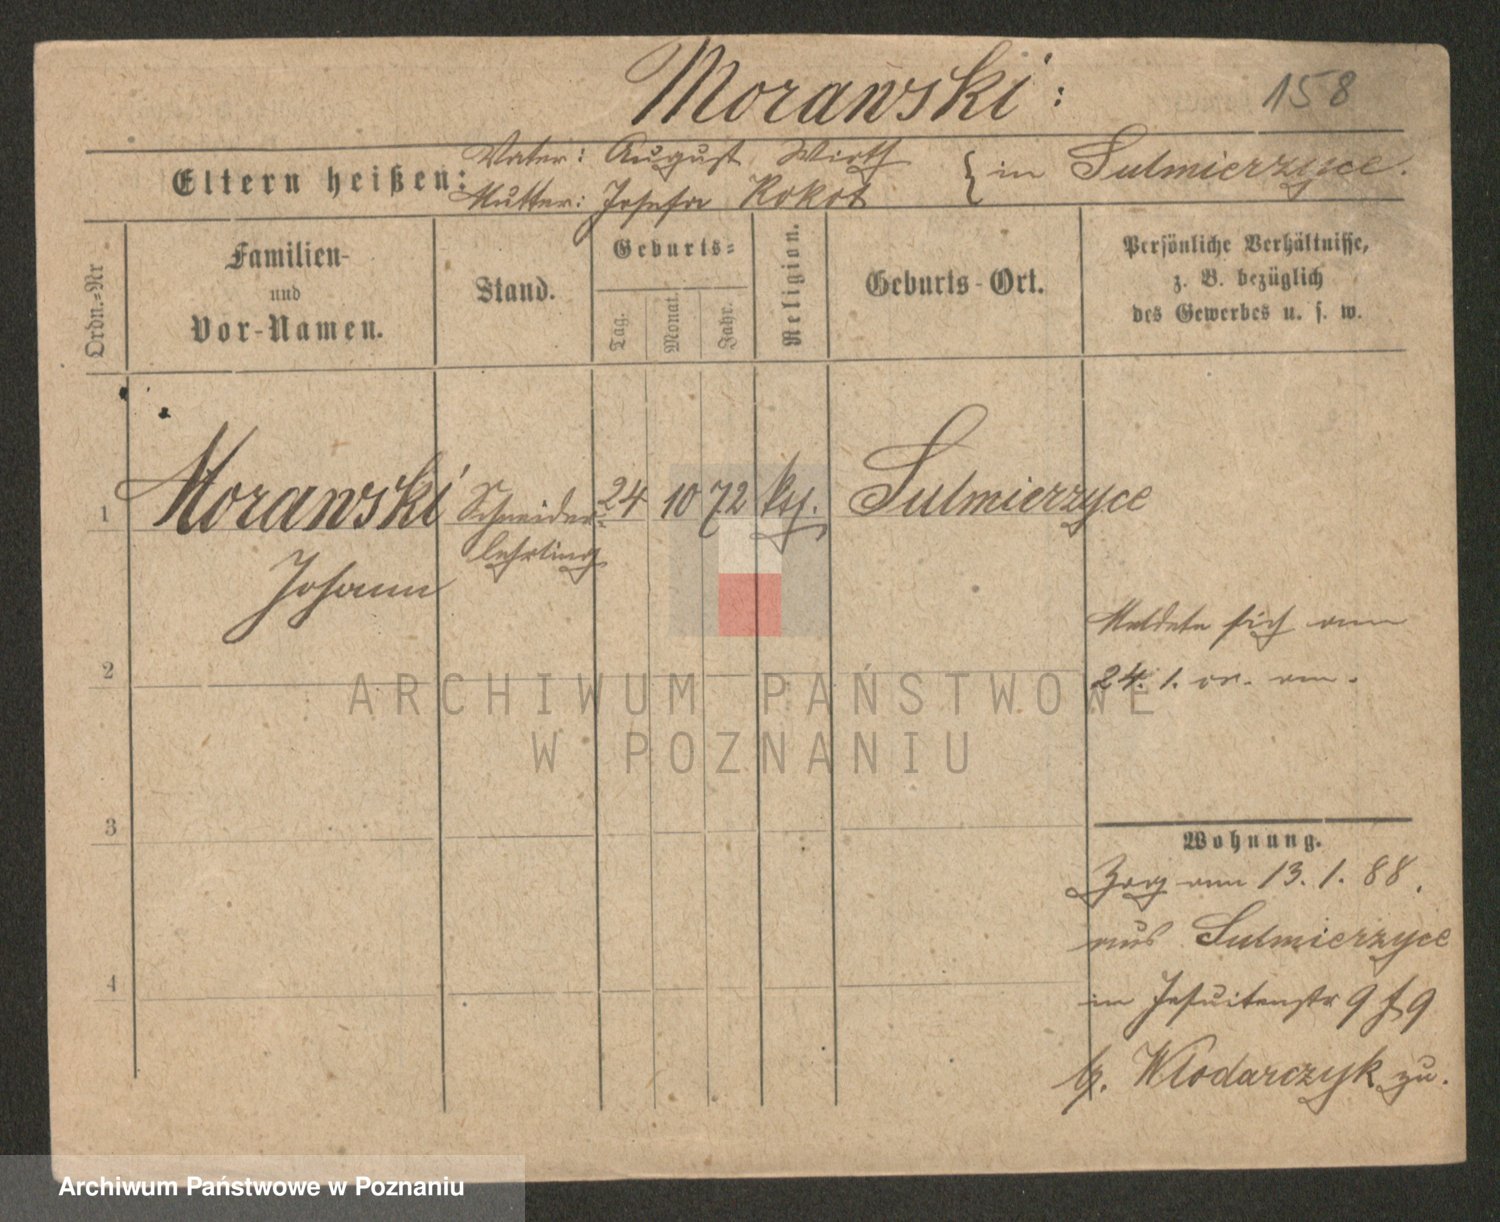 Morawski:
158
Eltern heißen:
Vater: August Wirth
Mutter: Josefa Kokot
} in Sulmierzyce.
Ordn.=Nr
Familien-
und
Vor-Namen.
Stand.
Geburts=
Tag.
Monat.
Jahr.
Religion.
Geburts-Ort.
Persönliche Verhältnisse,
z. B. bezüglich
des Gewerbes u. s. w.
1 Morawski Schneider= 24 10 72 kth. Sulmierzyce
lehrling
Johann
Meldete sich am
24. 1. cr. an.
2
ARCHIWUM PAŃSTWOWE
W POZNANIU
3
Wohnung.
Zog am 13. 1. 88.
aus Sulmierzyce
in Jesuitenstr 9
b. Wlodarczyk zu.
4
Archiwum Państwowe w Poznaniu